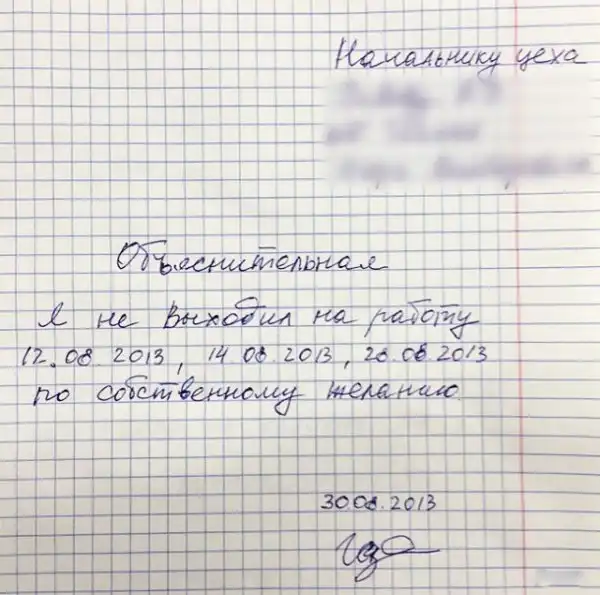 Начальнику цеха
Объяснительная
Я не выходил на работу
12.08.2013, 14.08.2013, 26.08.2013
по собственному желанию
30.08.2013